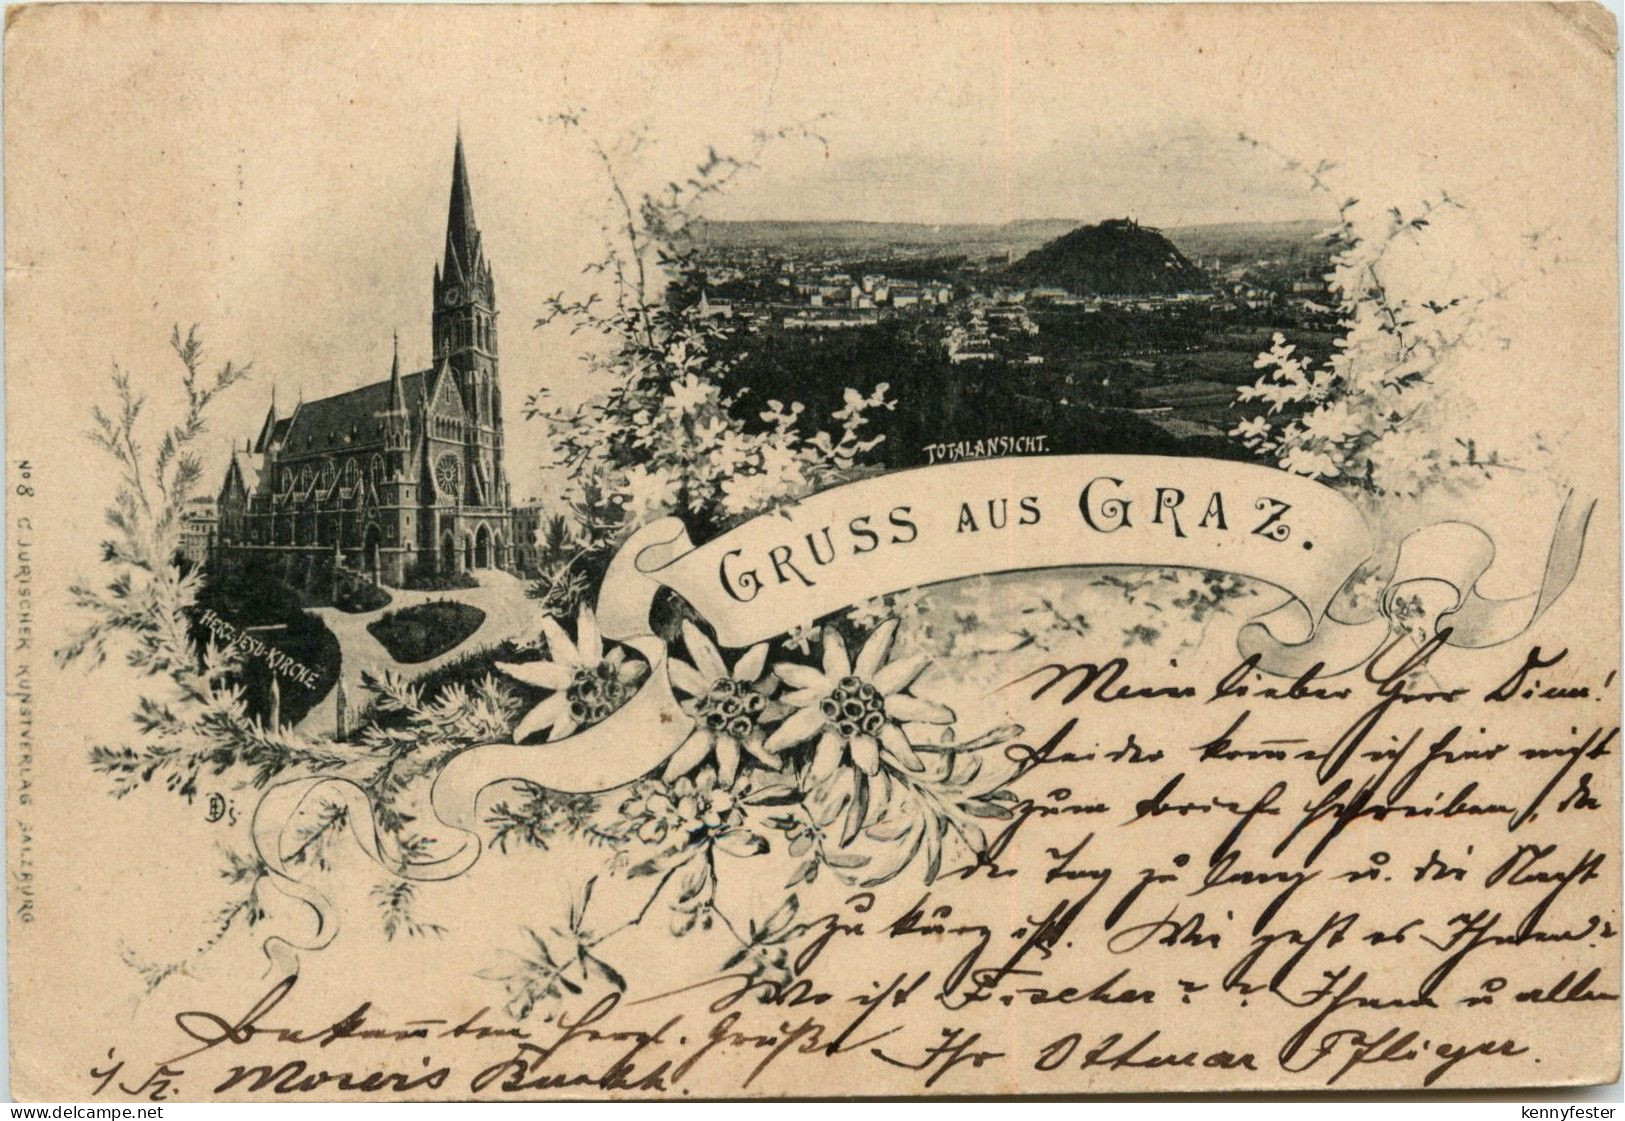 TOTALANSICHT.
GRUSS AUS GRAZ.
HERZ-JESU-KIRCHE.
No 8 C. JURISCHEK KUNSTVERLAG SALZBURG
Mein lieber Herr Dium!
Leider komme ich hier nicht
zum Briefe schreiben, da
der Tag zu lang u. die Nacht
zu kurz ist. Wie geht es Ihnen?
Wo ist Fischer? ? Ihnen u allen
Bekannten herzl. Grüße Ihr Ottmar Pflieger.
i/ Fr.
kennyfester